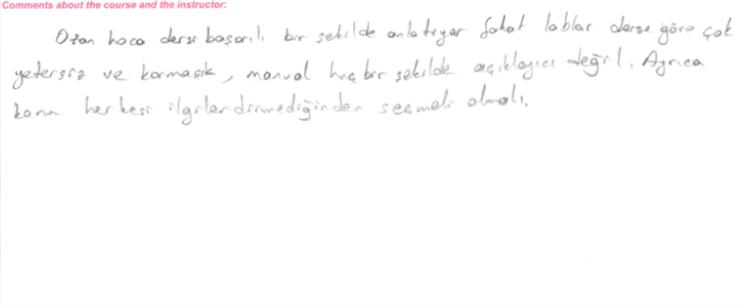 Comments about the course and the instructor:
Ozan hoca dersi başarılı bir şekilde anlatıyor fakat lablar derse göre çok
yetersiz ve karmaşık, manual hiçbir şekilde açıklayıcı değil. Ayrıca
konu herkesi ilgilendirmediğinden seçmeli olmalı.